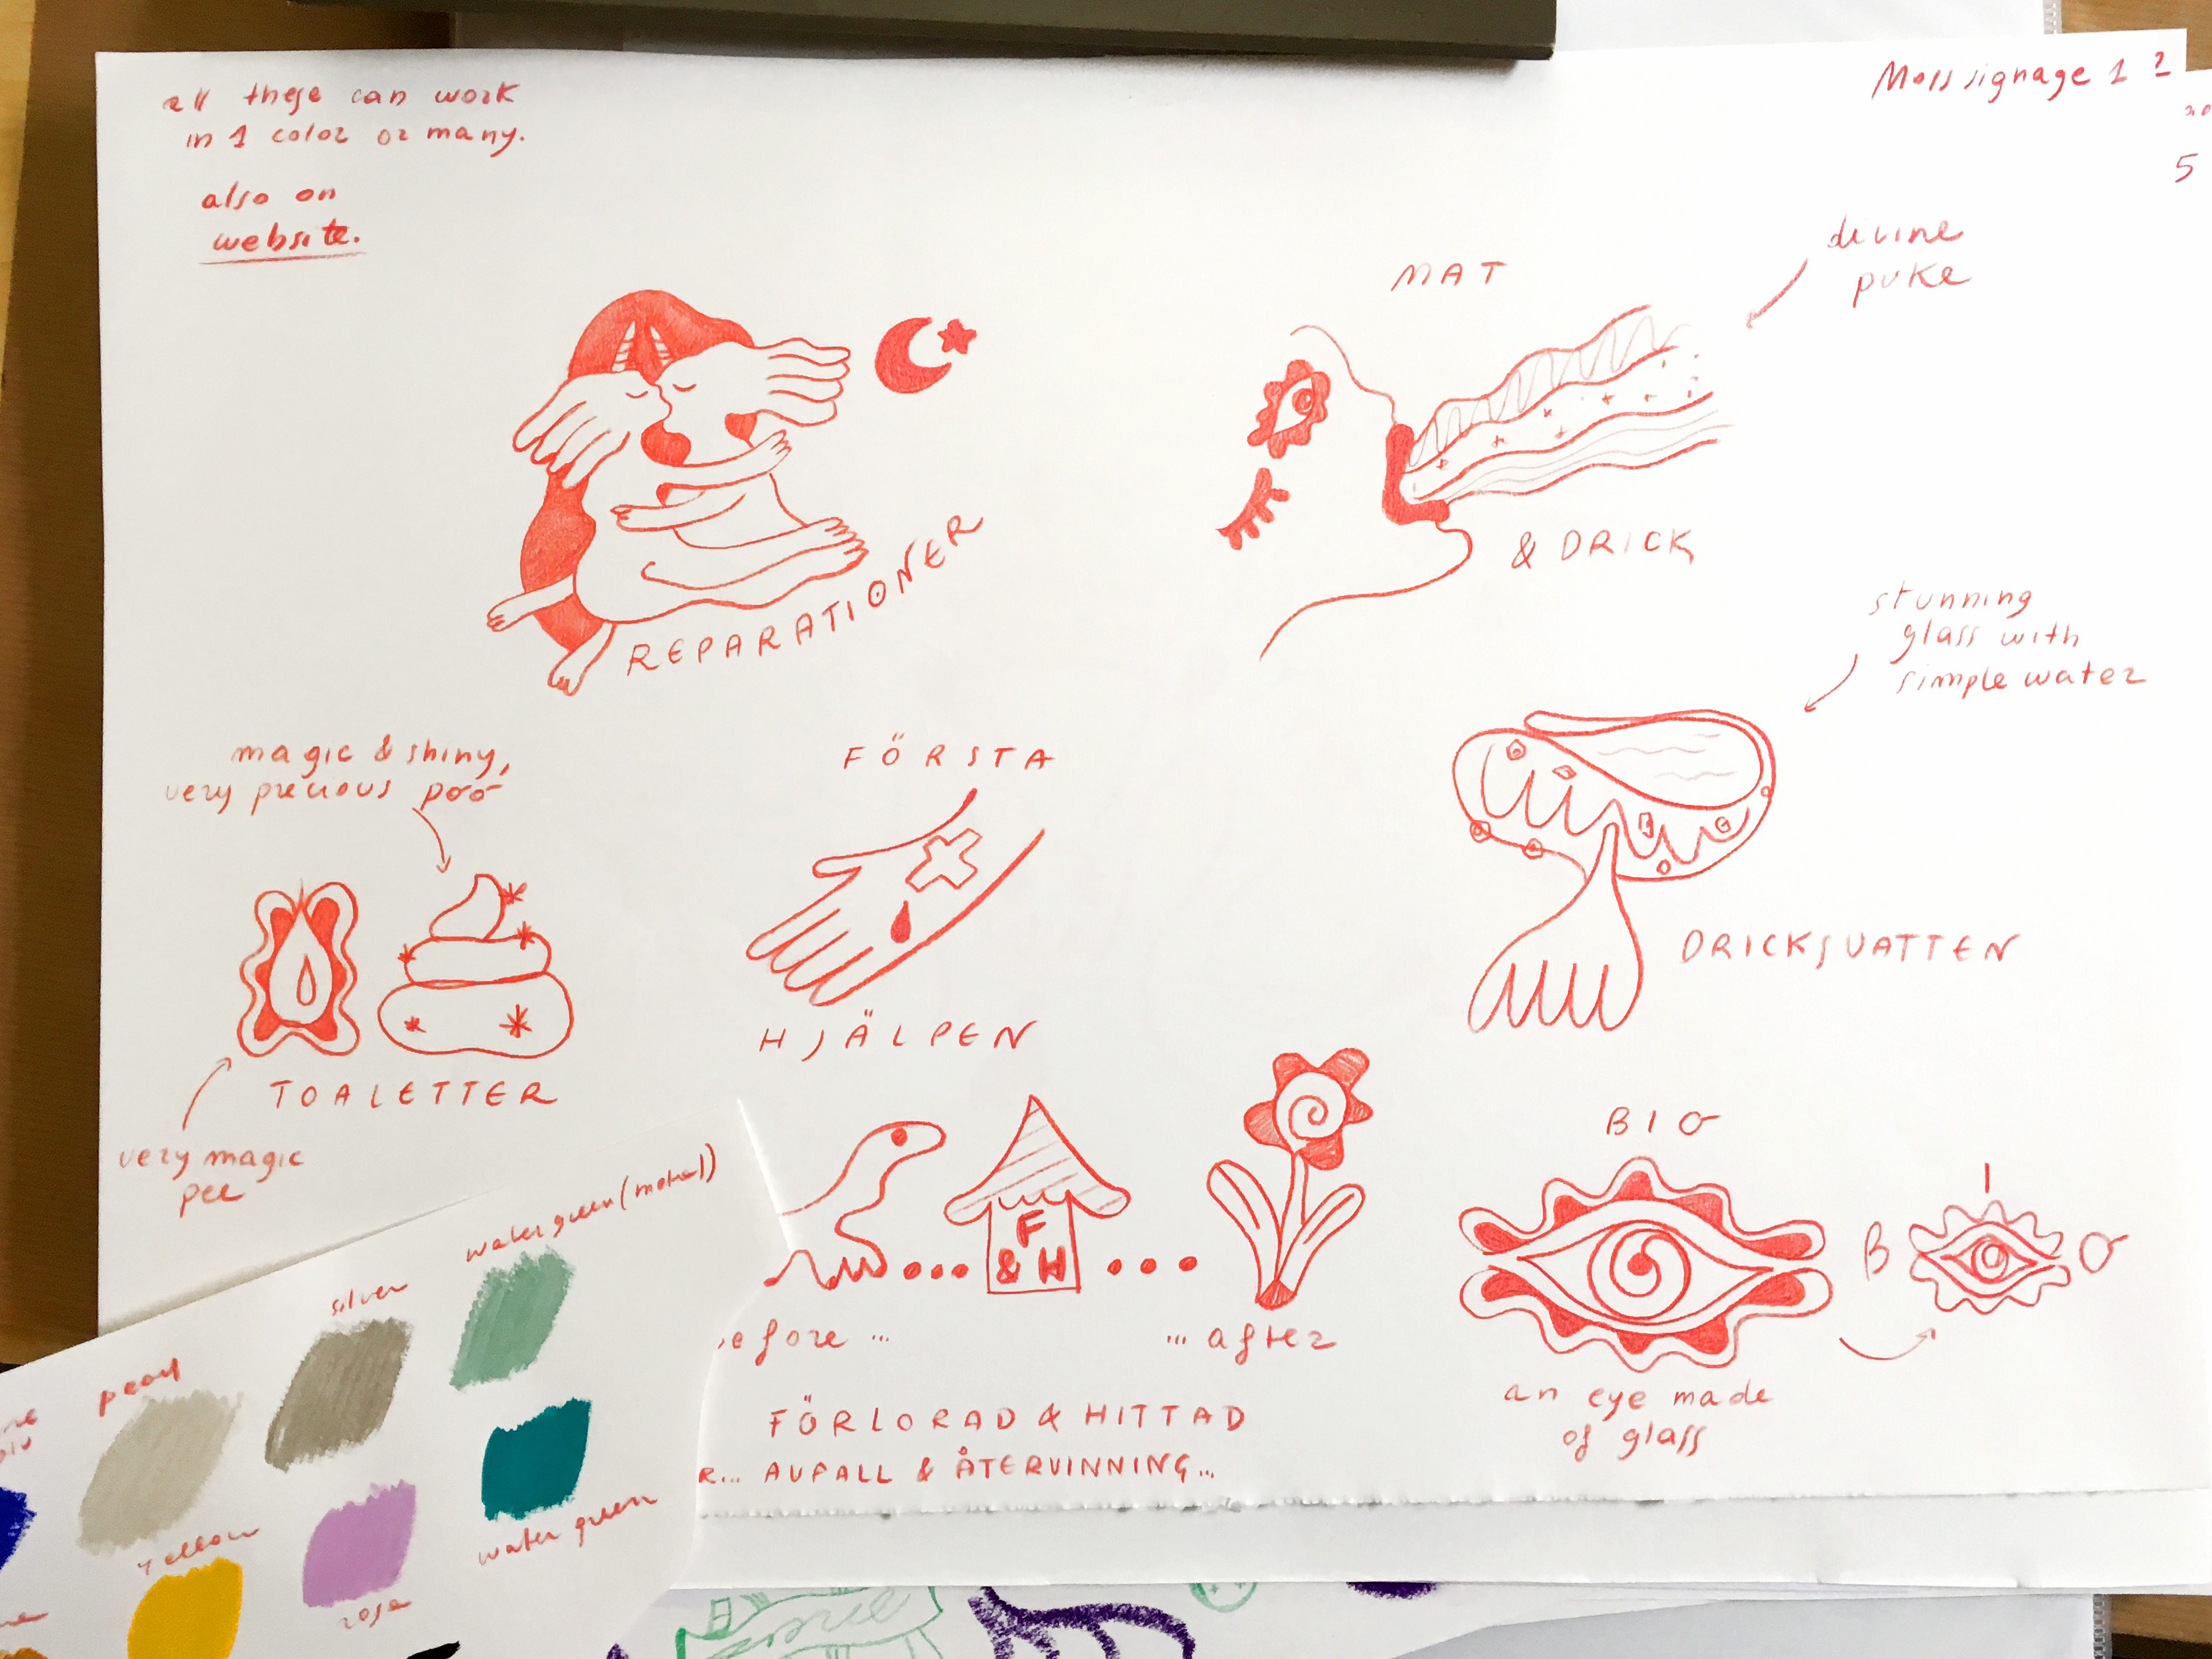 all these can work
in 1 color or many.
also on
website.
Moss signage 1 2
5
MAT
divine
puke
& DRICK
REPARATIONER
stunning
glass with
simple water
magic & shiny,
very precious poo
FÖRSTA
HJÄLPEN
DRICKSVATTEN
TOALETTER
very magic
pee
F
& H
BIO
B I O
before ...
... after
an eye made
of glass
FÖRLORAD & HITTAD
R... AVFALL & ÅTERVINNING...
water green (metal)
silver
pearl
yellow
rose
water green